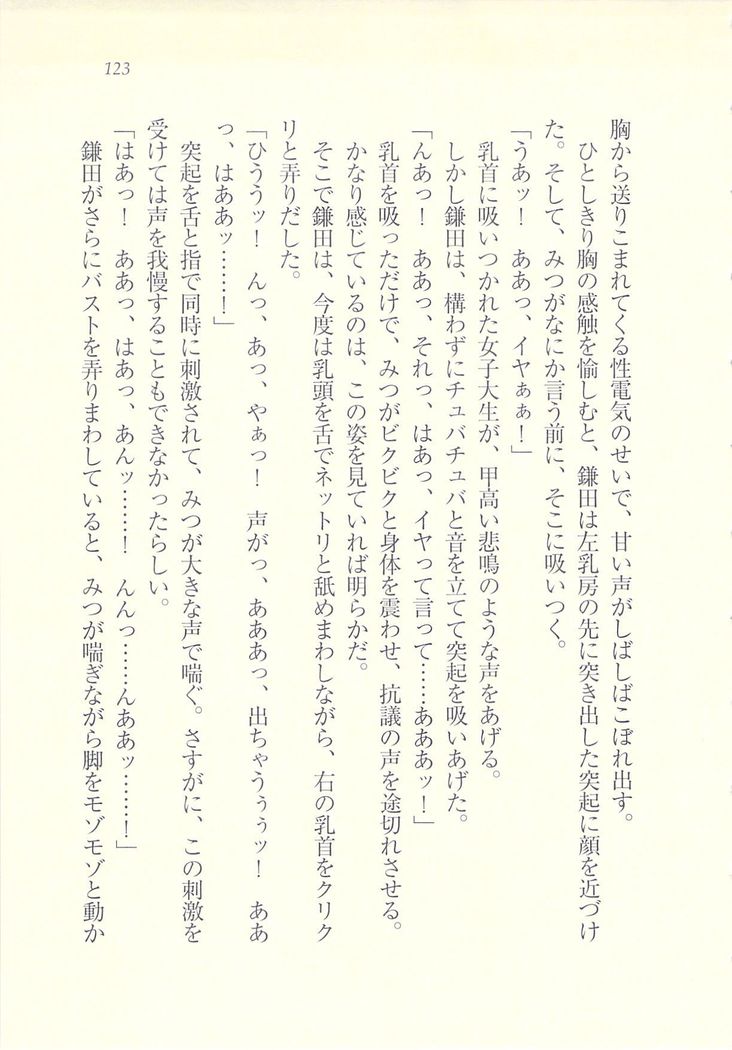 123
胸から送りこまれてくる性電気のせいで、甘い声がしばしばこぼれ出す。
ひとしきり胸の感触を愉しむと、鎌田は左乳房の先に突き出した突起に顔を近づけ
た。そして、みつがなにか言う前に、そこに吸いつく。
「うあッ！　ああっ、イヤぁぁ！」
乳首に吸いつかれた女子大生が、甲高い悲鳴のような声をあげる。
しかし鎌田は、構わずにチュバチュバと音を立てて突起を吸いあげた。
「んあっ！　ああっ、それっ、はあっ、イヤって言って……あああッ！」
乳首を吸っただけで、みつがビクビクと身体を震わせ、抗議の声を途切れさせる。
かなり感じているのは、この姿を見ていれば明らかだ。
そこで鎌田は、今度は乳頭を舌でネットリと舐めまわしながら、右の乳首をクリク
リと弄りだした。
「ひううッ！　んっ、あっ、やぁっ！　声がっ、あああっ、出ちゃうぅぅッ！　ああ
っ、はああッ……！」
突起を舌と指で同時に刺激されて、みつが大きな声で喘ぐ。さすがに、この刺激を
受けては声を我慢することもできなかったらしい。
「はあっ！　ああっ、はあっ、あんッ……！　んんっ……んああッ……！」
鎌田がさらにバストを弄りまわしていると、みつが喘ぎながら脚をモゾモゾと動か